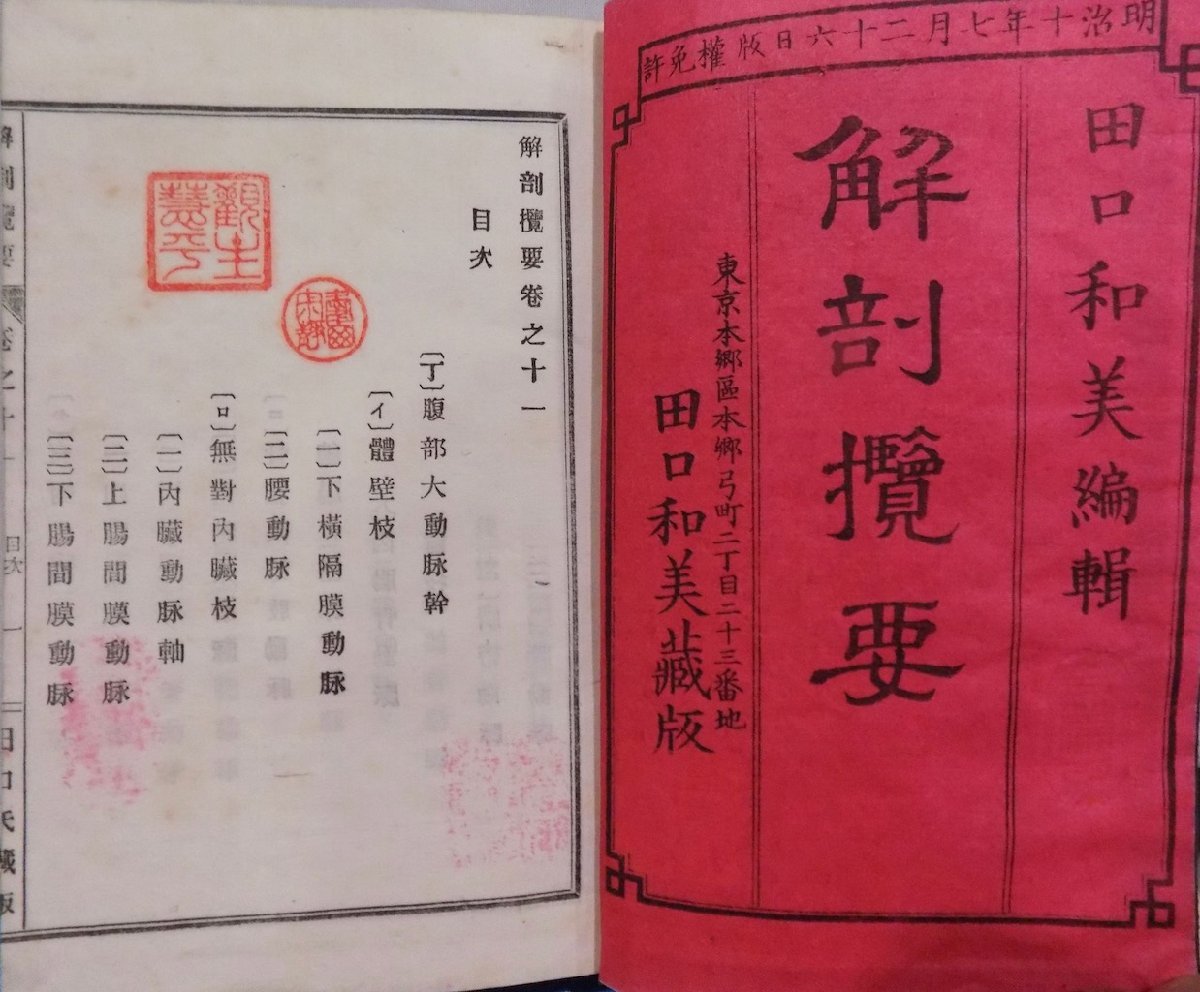 明治十年七月二十六日版權免許
田口和美編輯
解剖攬要
東京本郷區本郷弓町二丁目二十三番地
田口和美藏版
解剖攬要卷之十一
目次
〔丁〕腹部大動脉幹
〔イ〕體壁枝
〔一〕下橫隔膜動脉
〔二〕腰動脉
〔ロ〕無對內臟枝
〔一〕內臟動脉軸
〔二〕上腸間膜動脉
〔三〕下腸間膜動脉
解剖攬要 卷之十一 目次 一 田口氏藏版